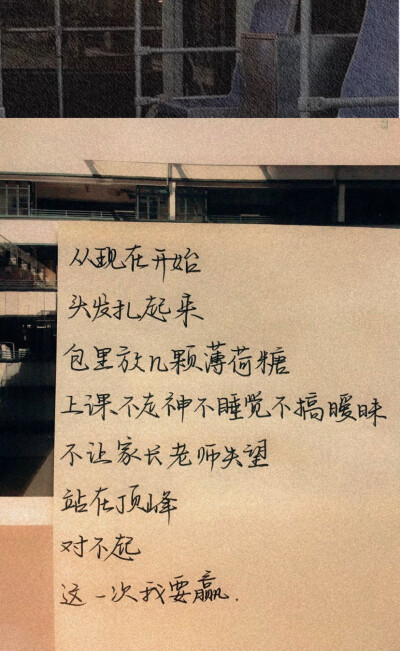 从现在开始
头发扎起来
包里放几颗薄荷糖
上课不走神不睡觉不搞暧昧
不让家长老师失望
站在顶峰
对不起
这一次我要赢.